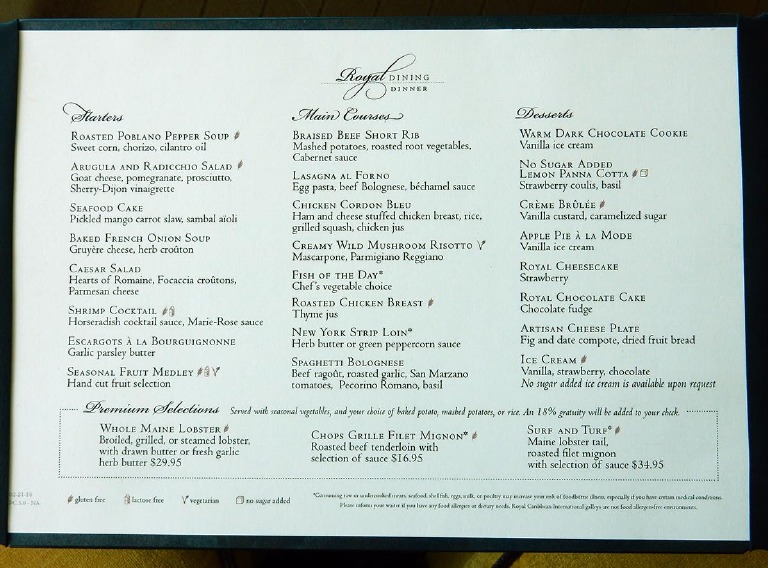 Royal DINING
DINNER
Starters
ROASTED POBLANO PEPPER SOUP
Sweet corn, chorizo, cilantro oil
ARUGULA AND RADICCHIO SALAD
Goat cheese, pomegranate, prosciutto,
Sherry-Dijon vinaigrette
SEAFOOD CAKE
Pickled mango carrot slaw, sambal aïoli
BAKED FRENCH ONION SOUP
Gruyère cheese, herb croûton
CAESAR SALAD
Hearts of Romaine, Focaccia croûtons,
Parmesan cheese
SHRIMP COCKTAIL
Horseradish cocktail sauce, Marie-Rose sauce
ESCARGOTS À LA BOURGUIGNONNE
Garlic parsley butter
SEASONAL FRUIT MEDLEY
Hand cut fruit selection
Main Courses
BRAISED BEEF SHORT RIB
Mashed potatoes, roasted root vegetables,
Cabernet sauce
LASAGNA AL FORNO
Egg pasta, beef Bolognese, béchamel sauce
CHICKEN CORDON BLEU
Ham and cheese stuffed chicken breast, rice,
grilled squash, chicken jus
CREAMY WILD MUSHROOM RISOTTO
Mascarpone, Parmigiano Reggiano
FISH OF THE DAY*
Chef's vegetable choice
ROASTED CHICKEN BREAST
Thyme jus
NEW YORK STRIP LOIN*
Herb butter or green peppercorn sauce
SPAGHETTI BOLOGNESE
Beef ragoût, roasted garlic, San Marzano
tomatoes, Pecorino Romano, basil
Desserts
WARM DARK CHOCOLATE COOKIE
Vanilla ice cream
NO SUGAR ADDED
LEMON PANNA COTTA
Strawberry coulis, basil
CRÈME BRÛLÉE
Vanilla custard, caramelized sugar
APPLE PIE À LA MODE
Vanilla ice cream
ROYAL CHEESECAKE
Strawberry
ROYAL CHOCOLATE CAKE
Chocolate fudge
ARTISAN CHEESE PLATE
Fig and date compote, dried fruit bread
ICE CREAM
Vanilla, strawberry, chocolate
No sugar added ice cream is available upon request
Premium Selections Served with seasonal vegetables, and your choice of baked potato, mashed potatoes, or rice. An 18% gratuity will be added to your check.
WHOLE MAINE LOBSTER
Broiled, grilled, or steamed lobster,
with drawn butter or fresh garlic
herb butter $29.95
CHOPS GRILLE FILET MIGNON*
Roasted beef tenderloin with
selection of sauce $16.95
SURF AND TURF*
Maine lobster tail,
roasted filet mignon
with selection of sauce $34.95
gluten free lactose free vegetarian no sugar added
*Consuming raw or undercooked meats, seafood, shellfish, eggs, milk, or poultry may increase your risk of foodborne illness, especially if you have certain medical conditions.
Please inform your waiter if you have any food allergies or dietary needs. Royal Caribbean International galleys are not food allergen-free environments.